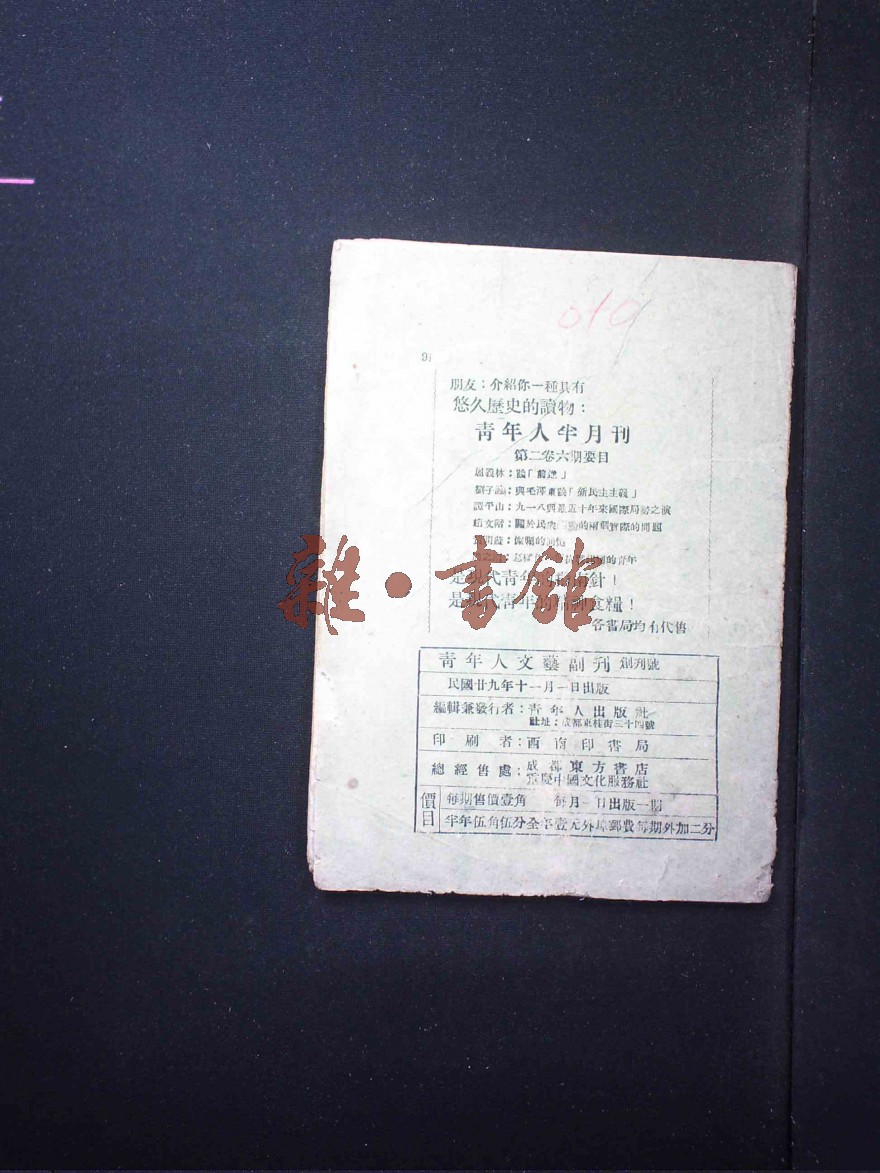 朋友：介紹你一種具有
悠久歷史的讀物：
青年人半月刊
第二卷六期要目
與毛澤東談「新民主主義」
譚平山：九一八與五十年來國際局勢之演
趙文階：關於民 的兩個實際的問題
的青年
是現代青年 針！
是現代青年的精神食糧！
各書局均有代售
雜·書館
青年人文藝副刊 創刊號
民國廿九年十一月一日出版
編輯兼發行者：青年人出版社
社址：成都東桂街三十四號
印刷者：西南印書局
總經售處：成都東方書店
重慶中國文化服務社
價目
每期售價壹角 每月一日出版一期
半年伍角伍分全年壹元外埠郵費每期外加二分